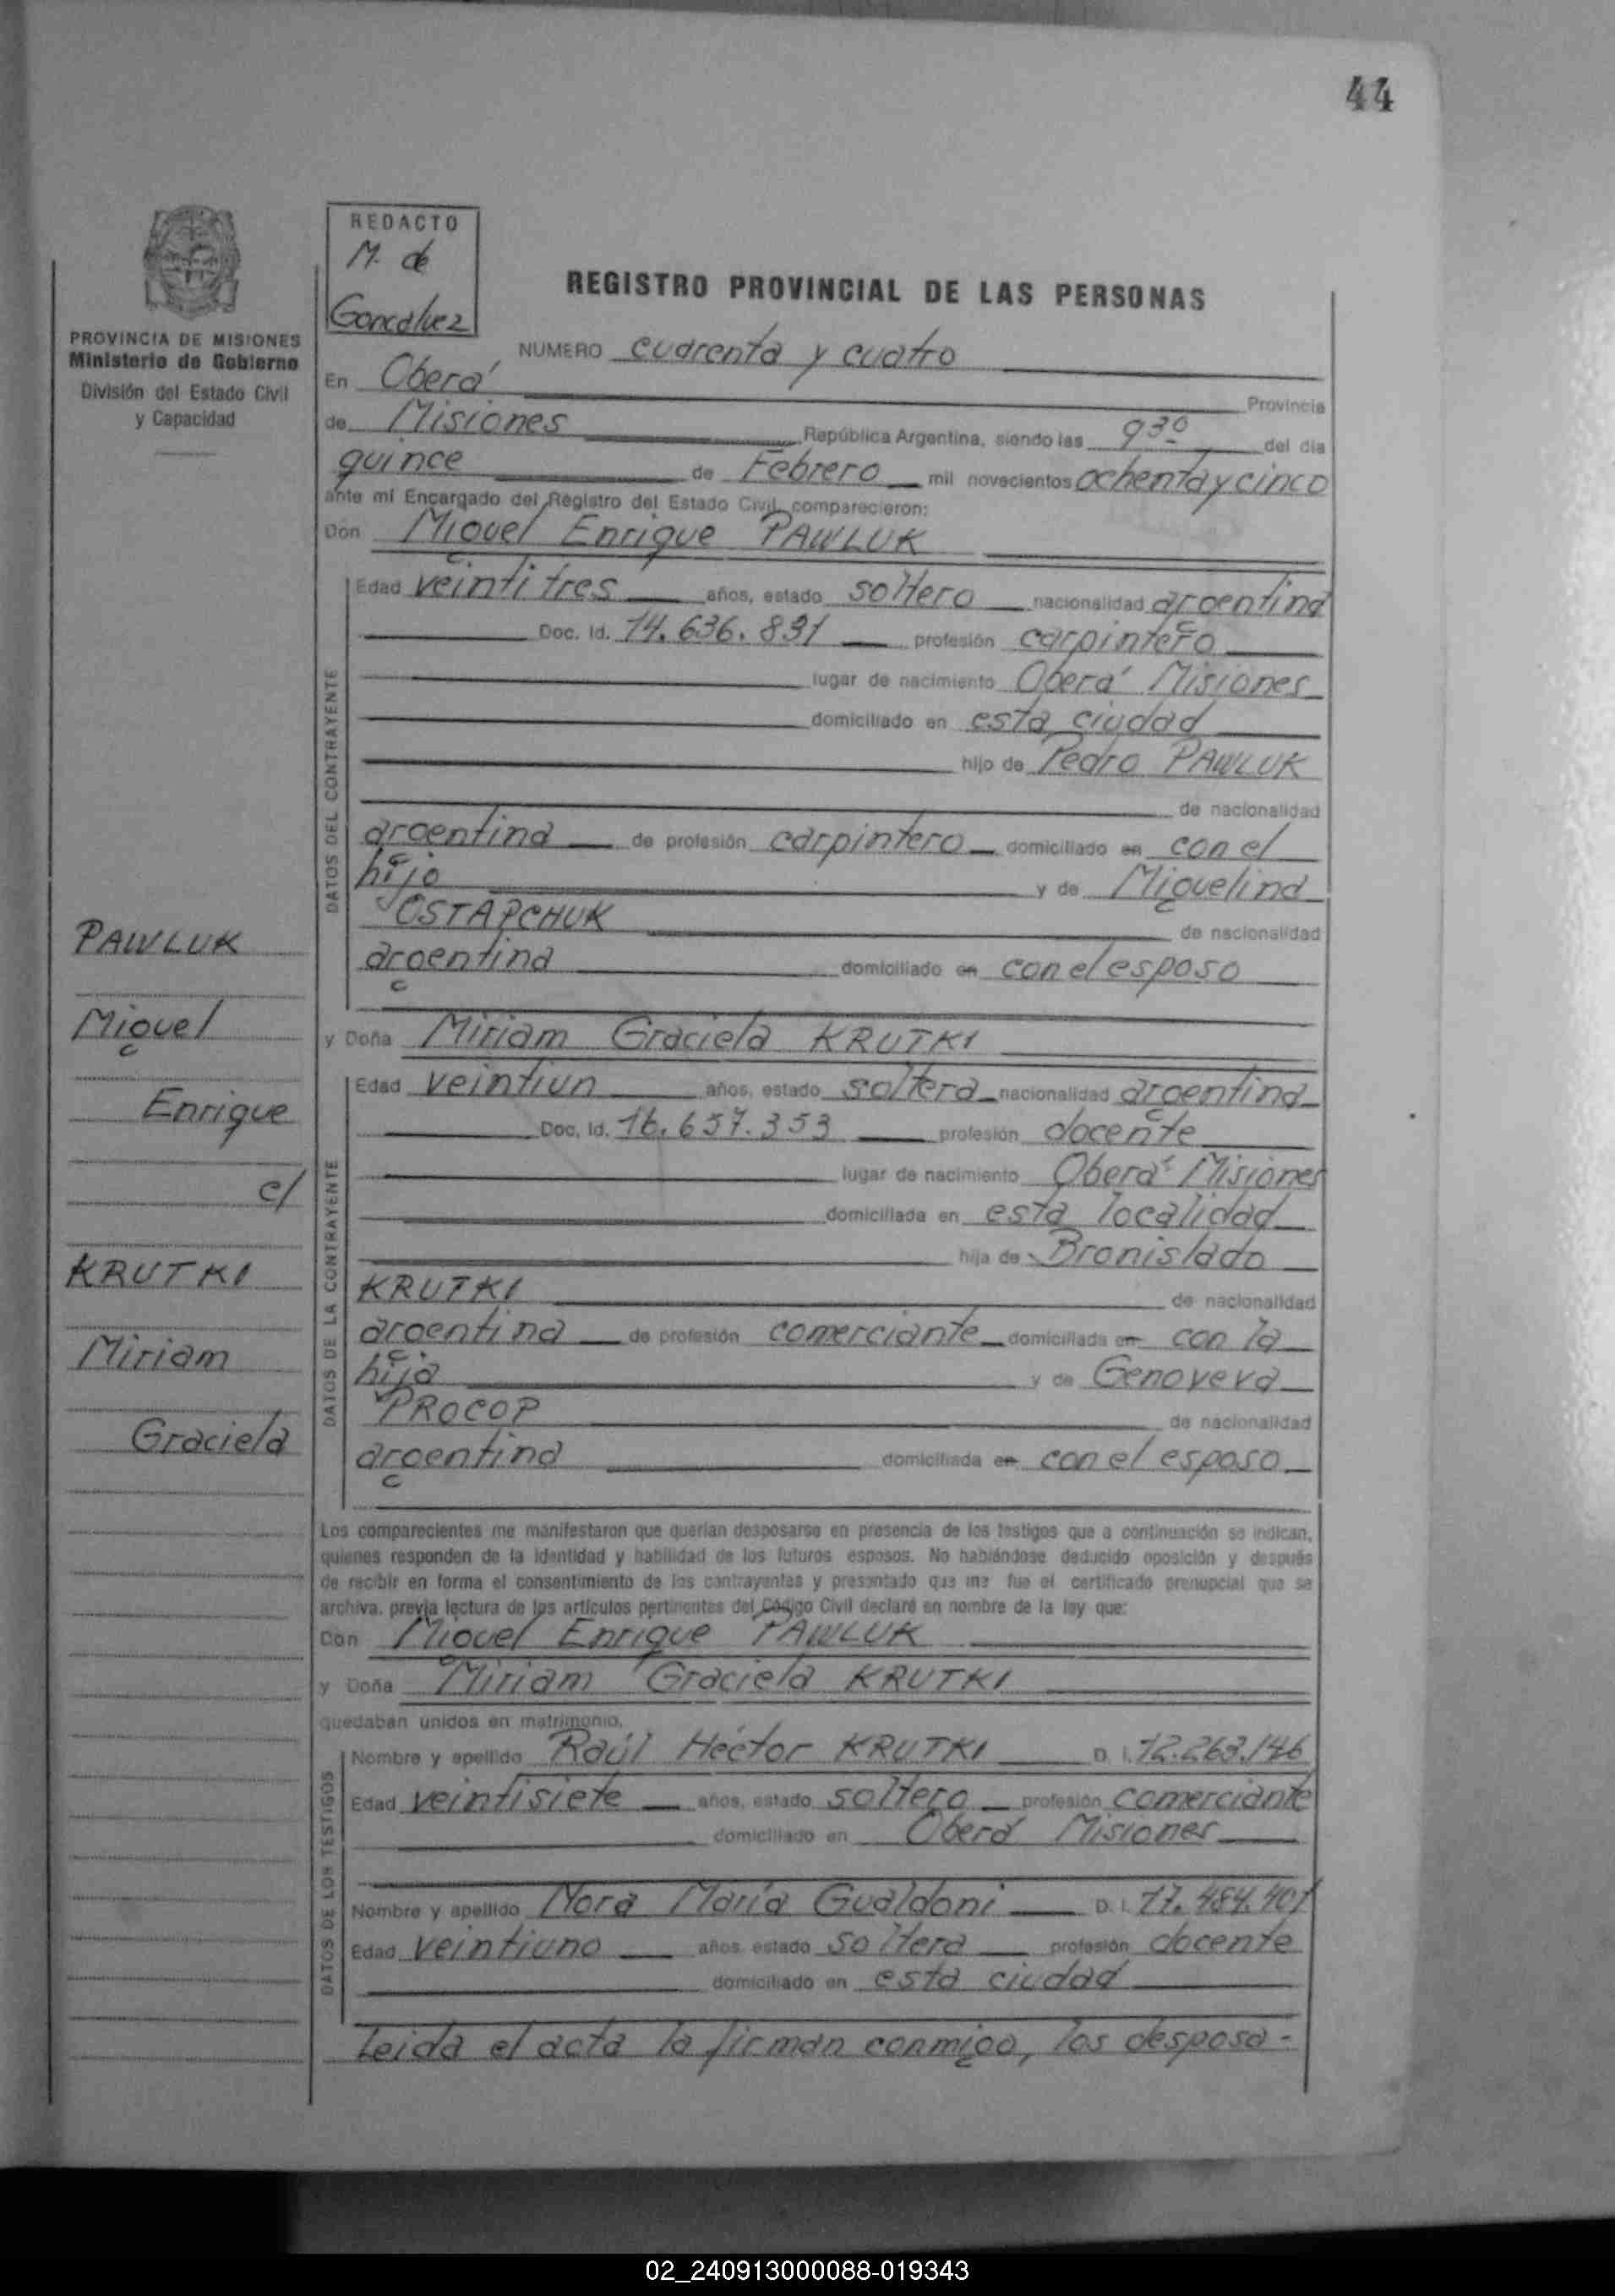 44
REDACTO
M. de
Goncalvez
PROVINCIA DE MISIONES
Ministerio de Gobierno
División del Estado Civil
y Capacidad
REGISTRO PROVINCIAL DE LAS PERSONAS
NUMERO cuarenta y cuatro
En Oberá Provincia
de Misiones República Argentina, siendo las 9 30 del día
quince de Febrero mil novecientos ochenta y cinco
ante mí Encargado del Registro del Estado Civil, comparecieron:
Don Miguel Enrique PAWLUK
DATOS DEL CONTRAYENTE
Edad veintitres años, estado soltero nacionalidad argentina
Doc. Id. 14.636.831 profesión carpintero
lugar de nacimiento Oberá Misiones
domiciliado en esta ciudad
hijo de Pedro PAWLUK
de nacionalidad
argentina de profesión carpintero domiciliado en con el
hijo y de Miguelina
OSTAPCHUK de nacionalidad
argentina domiciliado en con el esposo
y Doña Miriam Graciela KRUTKI
DATOS DE LA CONTRAYENTE
Edad veintiun años, estado soltera nacionalidad argentina
Doc. Id. 16.657.353 profesión docente
lugar de nacimiento Oberá Misiones
domiciliada en esta localidad
hija de Bronislado
KRUTKI de nacionalidad
argentina de profesión comerciante domiciliada en con la
hija y de Genoveva
PROCOP de nacionalidad
argentina domiciliada en con el esposo
PAWLUK
Miguel
Enrique
c/
KRUTKI
Miriam
Graciela
Los comparecientes me manifestaron que querían desposarse en presencia de los testigos que a continuación se indican,
quienes responden de la identidad y habilidad de los futuros esposos. No habiéndose deducido oposición y después
de recibir en forma el consentimiento de los contrayentes y presentado que me fue el certificado prenupcial que se
archiva, previa lectura de los artículos pertinentes del Código Civil declaré en nombre de la ley que:
Don Miguel Enrique PAWLUK
y Doña Miriam Graciela KRUTKI
quedaban unidos en matrimonio.
DATOS DE LOS TESTIGOS
Nombre y apellido Raúl Héctor KRUTKI D. I. 12.263.146
Edad veintisiete años, estado soltero profesión comerciante
domiciliado en Oberá Misiones
Nombre y apellido Nora María Gualdoni D. I. 17.484.401
Edad veintiuno años, estado soltera profesión docente
domiciliado en esta ciudad
Leida el acta la firman conmigo, los desposa-
02_240913000088-019343